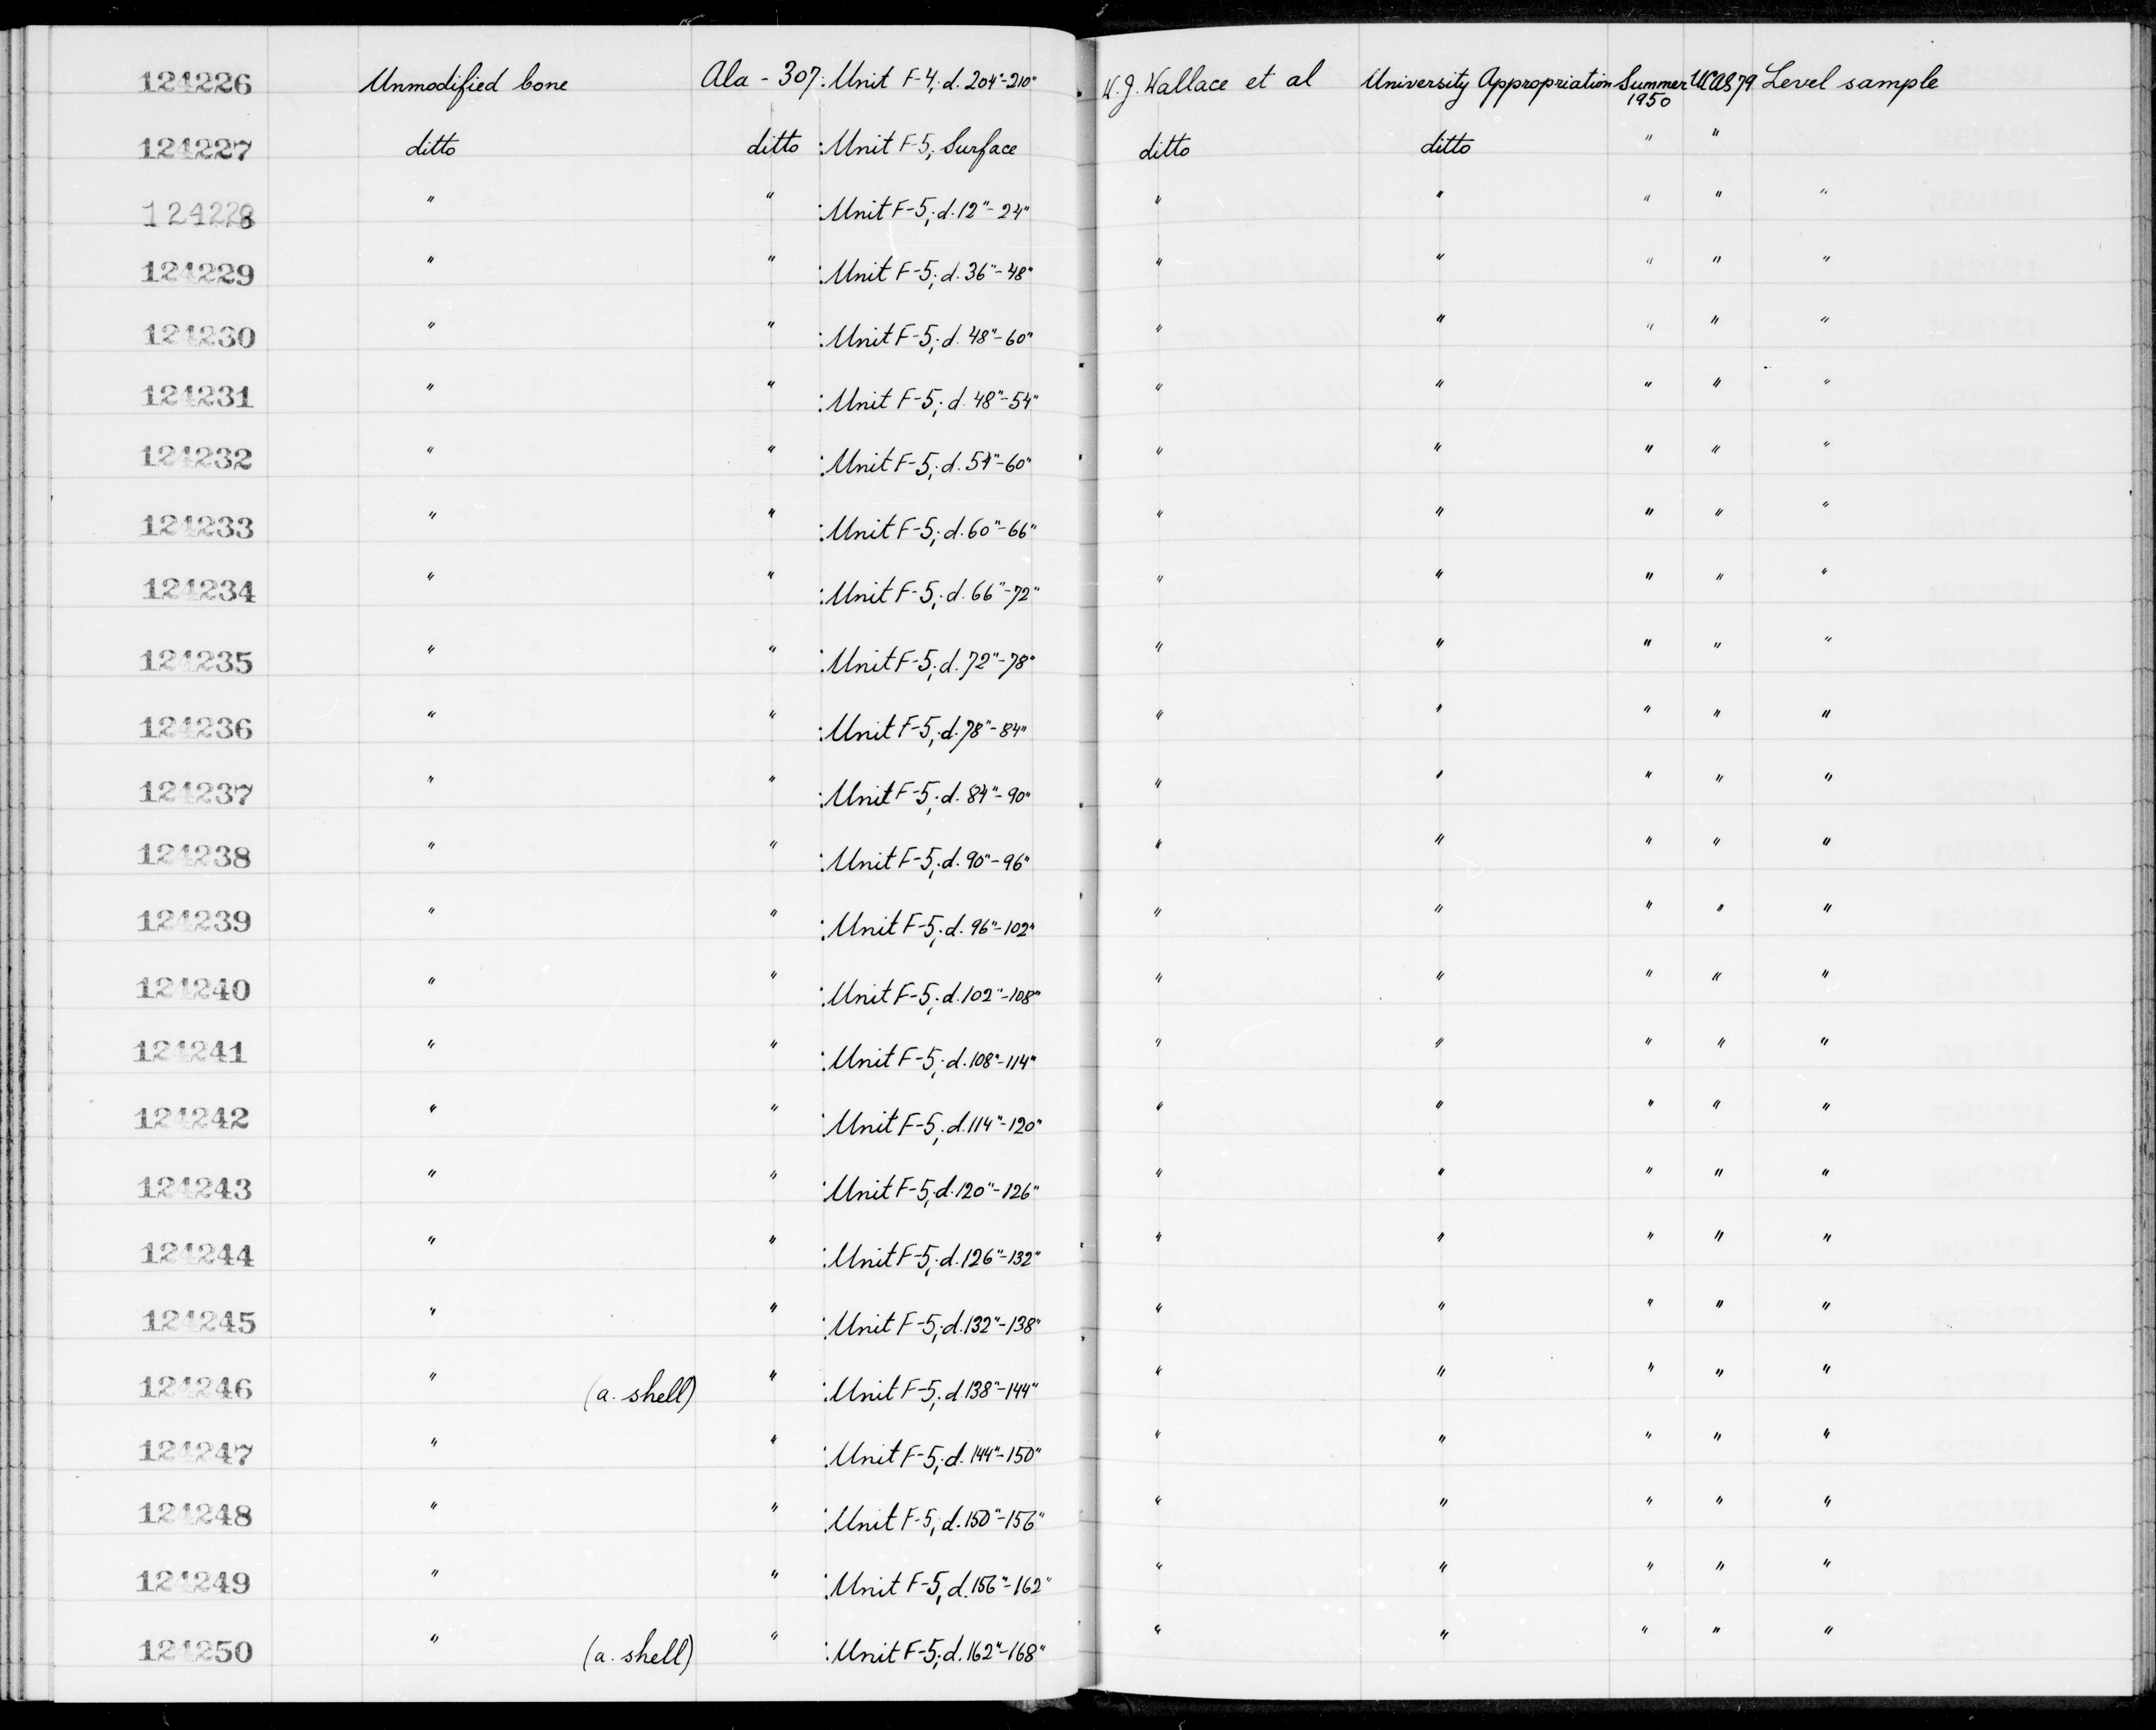 124226 Unmodified bone Ala - 307: Unit F-4; d. 204"-210" W.J. Wallace et al University Appropriation Summer 1950 UCAS 79 Level sample
124227 ditto ditto : Unit F-5; Surface ditto ditto " "
124228 " " : Unit F-5; d. 12"-24" " " " " "
124229 " " : Unit F-5; d. 36"-48" " " " " "
124230 " " : Unit F-5; d. 48"-60" " " " " "
124231 " " : Unit F-5; d. 48"-54" " " " " "
124232 " " : Unit F-5; d. 54"-60" " " " " "
124233 " " : Unit F-5; d. 60"-66" " " " " "
124234 " " : Unit F-5; d. 66"-72" " " " " "
124235 " " : Unit F-5; d. 72"-78" " " " " "
124236 " " : Unit F-5; d. 78"-84" " " " " "
124237 " " : Unit F-5; d. 84"-90" " " " " "
124238 " " : Unit F-5; d. 90"-96" " " " " "
124239 " " : Unit F-5; d. 96"-102" " " " " "
124240 " " : Unit F-5; d. 102"-108" " " " " "
124241 " " : Unit F-5; d. 108"-114" " " " " "
124242 " " : Unit F-5; d. 114"-120" " " " " "
124243 " " : Unit F-5; d. 120"-126" " " " " "
124244 " " : Unit F-5; d. 126"-132" " " " " "
124245 " " : Unit F-5; d. 132"-138" " " " " "
124246 " (a. shell) " : Unit F-5; d. 138"-144" " " " " "
124247 " " : Unit F-5; d. 144"-150" " " " " "
124248 " " : Unit F-5; d. 150"-156" " " " " "
124249 " " : Unit F-5; d. 156"-162" " " " " "
124250 " (a. shell) " : Unit F-5; d. 162"-168" " " " " "